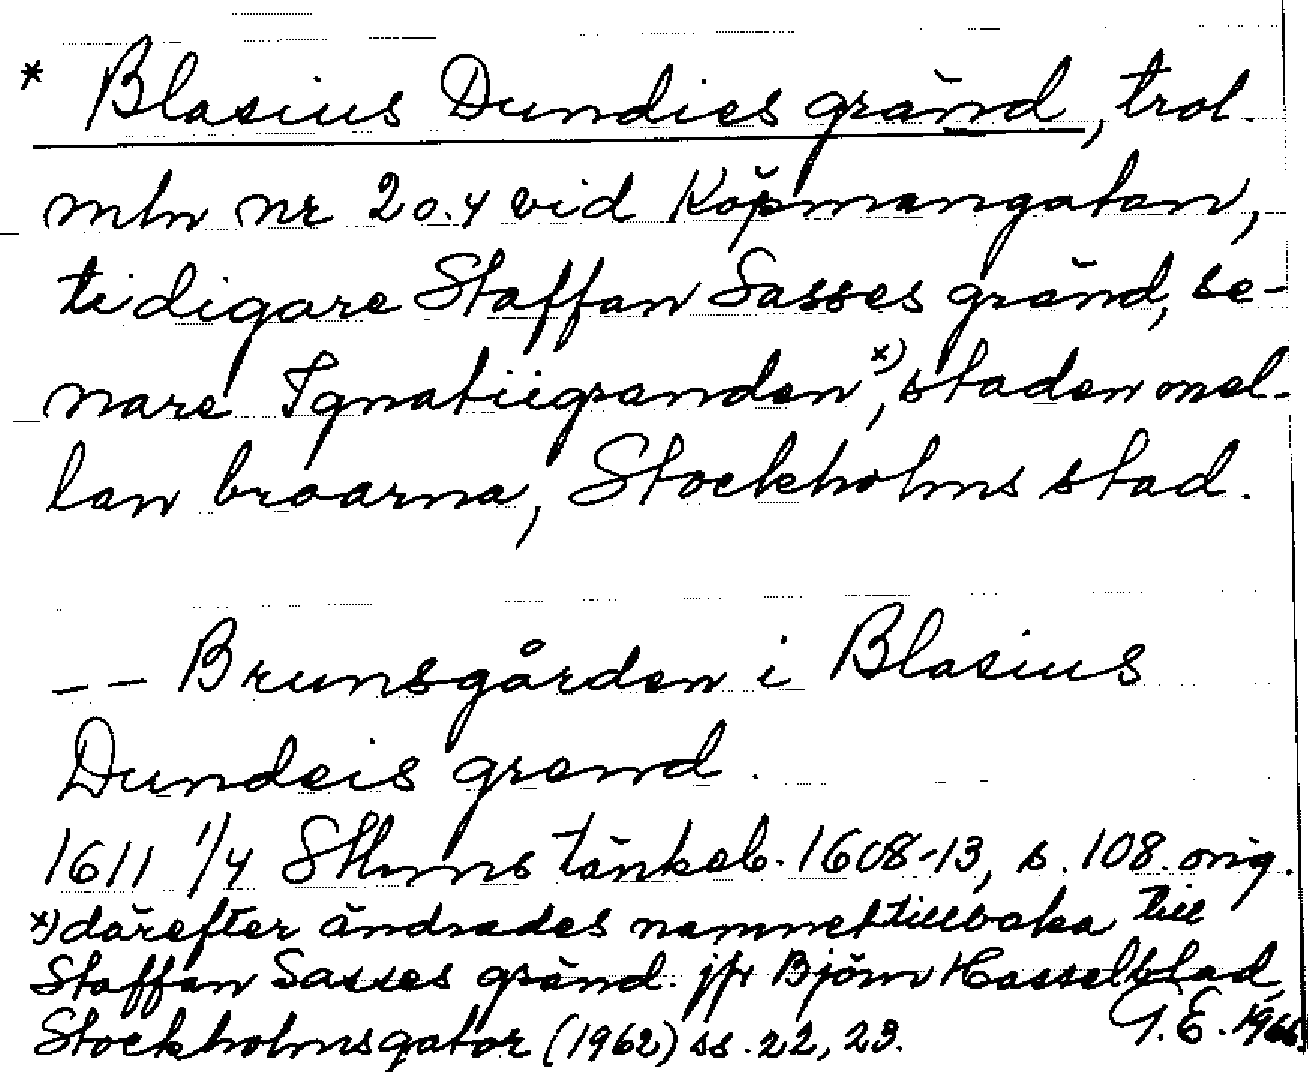 * Blasius Dundies gränd, trol.
mln nr 2 o. 4 vid Köpmangatan,
tidigare Staffan Sasses gränd, se-
nare Ignatiigranden x), staden mel-
lan broarna, Stockholms stad.
-- Brunsgården i Blasius
Dundeis grend.
1611 1/4 Sthms tänkeb. 1608-13, s. 108. orig.
x) därefter ändrades namnet tillbaka till
Staffan Sasses gränd. jfr Björn Hasselblad,
Stockholmsgator (1962) ss. 22, 23.
G.E. 1966